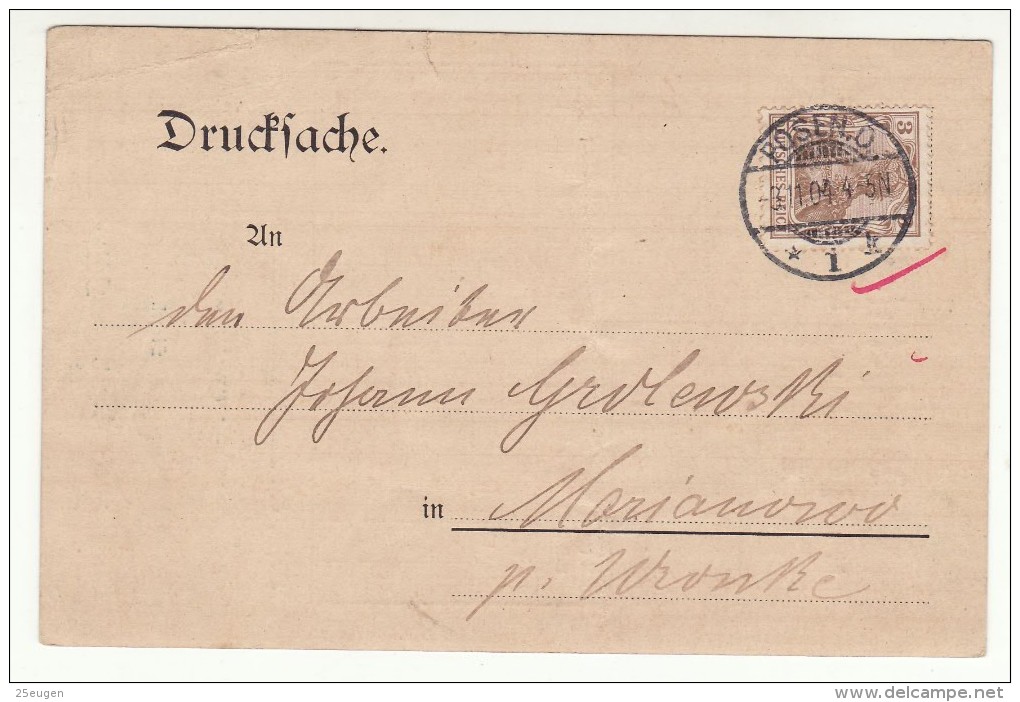 Drucksache.
3
DEUTSCHES REICH
POSEN. O.
11.04. 4-5N
* 1 k
An
den Arbeiter
Johann Grolewski
in Marianowo
p. Wronke
25eugen
www.delcampe.net